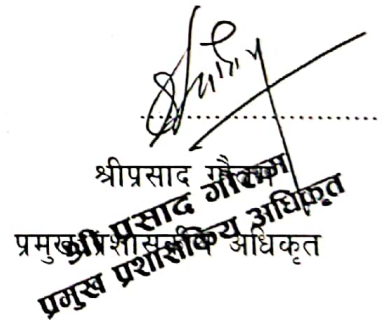 श्रीप्रसाद गौतम
प्रमुख प्रशासकीय अधिकृत
श्री प्रसाद गौतम
प्रमुख प्रशासकिय अधिकृत